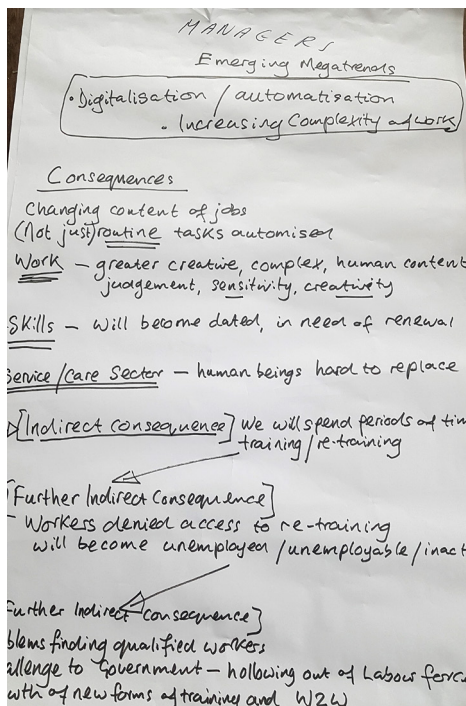 MANAGERS
Emerging Megatrends
• Digitalisation / automatisation
• Increasing Complexity of work
Consequences
Changing content of jobs
(Not just) routine tasks automised
Work – greater creative, complex, human content
judgement, sensitivity, creativity
Skills – will become dated, in need of renewal
Service/Care Sector – human beings hard to replace
[Indirect consequence] We will spend periods of tim
training/re-training
[Further Indirect Consequence]
– Workers denied access to re-training
will become unemployed/unemployable/inact
Further Indirect Consequence]
blems finding qualified workers
allenge to Government – hollowing out of Labour
wth of new forms of training and W2W